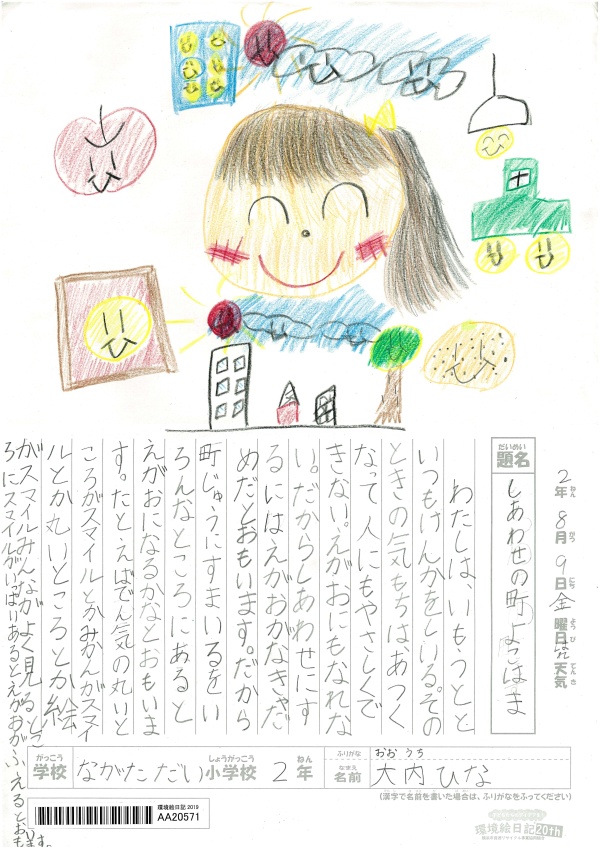 2年 8月 9日 金曜日 天気
ねん がつ にち ようび てんき
だいめい
題名 しあわせの町よこはま
わたしは、いもうとと
いつもけんかをしいる。その
ときの気もちは、あつく
なって人にもやさしくで
きない。えがおにもなれな
い。だからしあわせにす
るにはえがおがなきゃだ
めだとおもいます。だから
町じゅうにすまいるをい
ろんなところにあると
えがおになるかなとおもいま
す。たとえばでん気の丸いと
ころがスマイルとかみかんがスマイ
ルとか丸いところとか絵
がスマイルみんながよく見るとこ
ろにスマイルがいっぱいあるとえがおがふえるとおもいます。
がっこう しょうがっこう ねん ふりがな おおうち
学校 ながただい小学校 2年 なまえ 名前 大内ひな
(漢字で名前を書いた場合は、ふりがなをふってください)
環境絵日記 2019
AA20571
環境絵日記20th